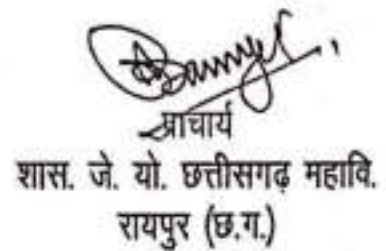 प्राचार्य
शास. जे. यो. छत्तीसगढ़ महावि.
रायपुर (छ.ग.)